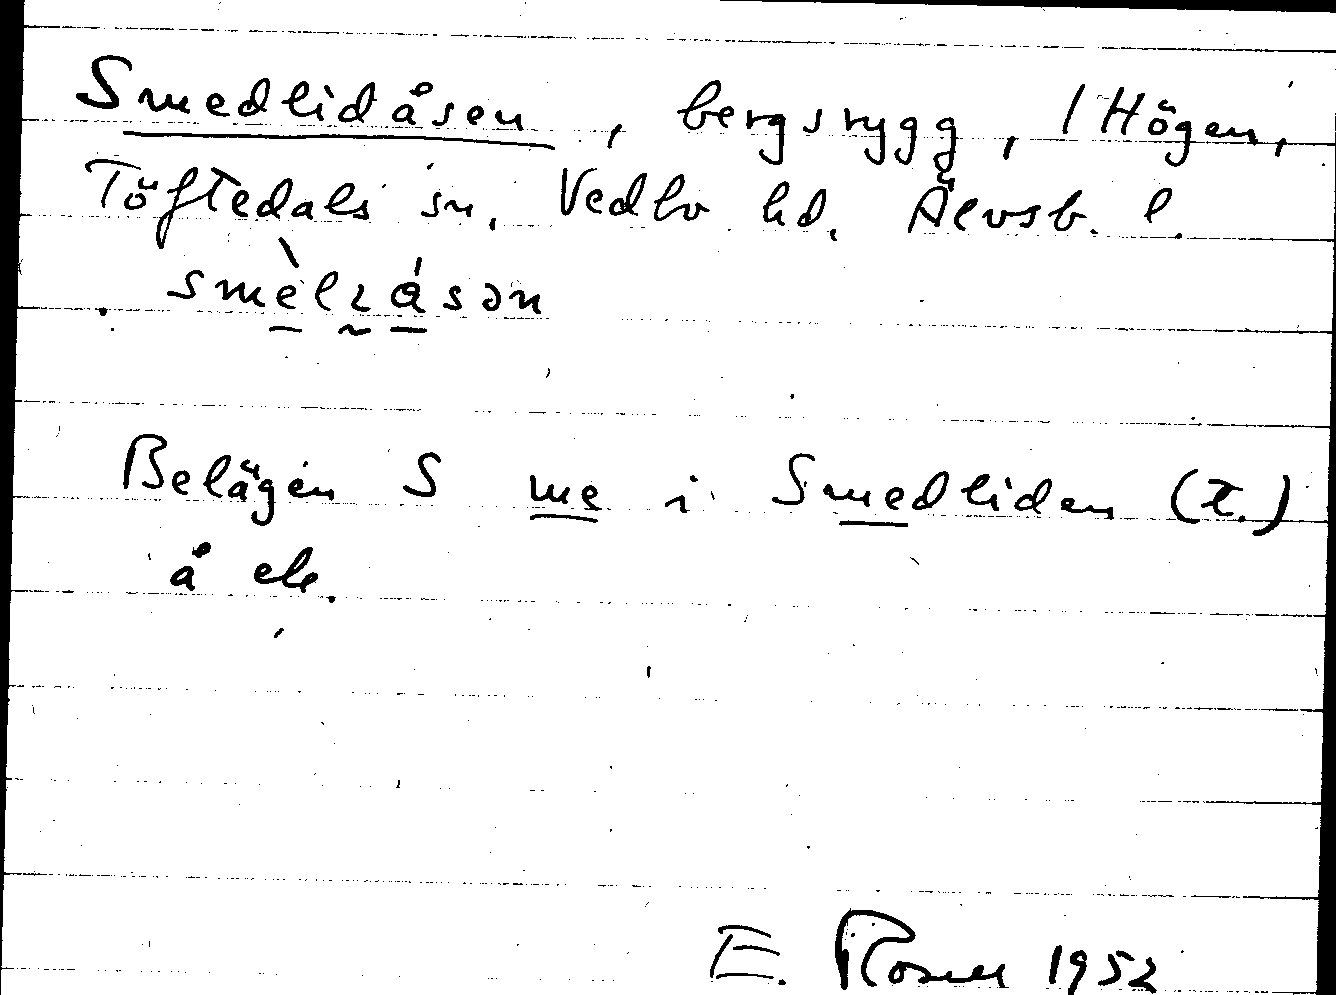 Smedlidåsen, bergsrygg, / Högen,
Töftedals sn. Vedbo hd. Älvsb. l.
smèlɩåsən
Belägen S me i Smedliden (t.)
å ek.
E. Rosell 1952